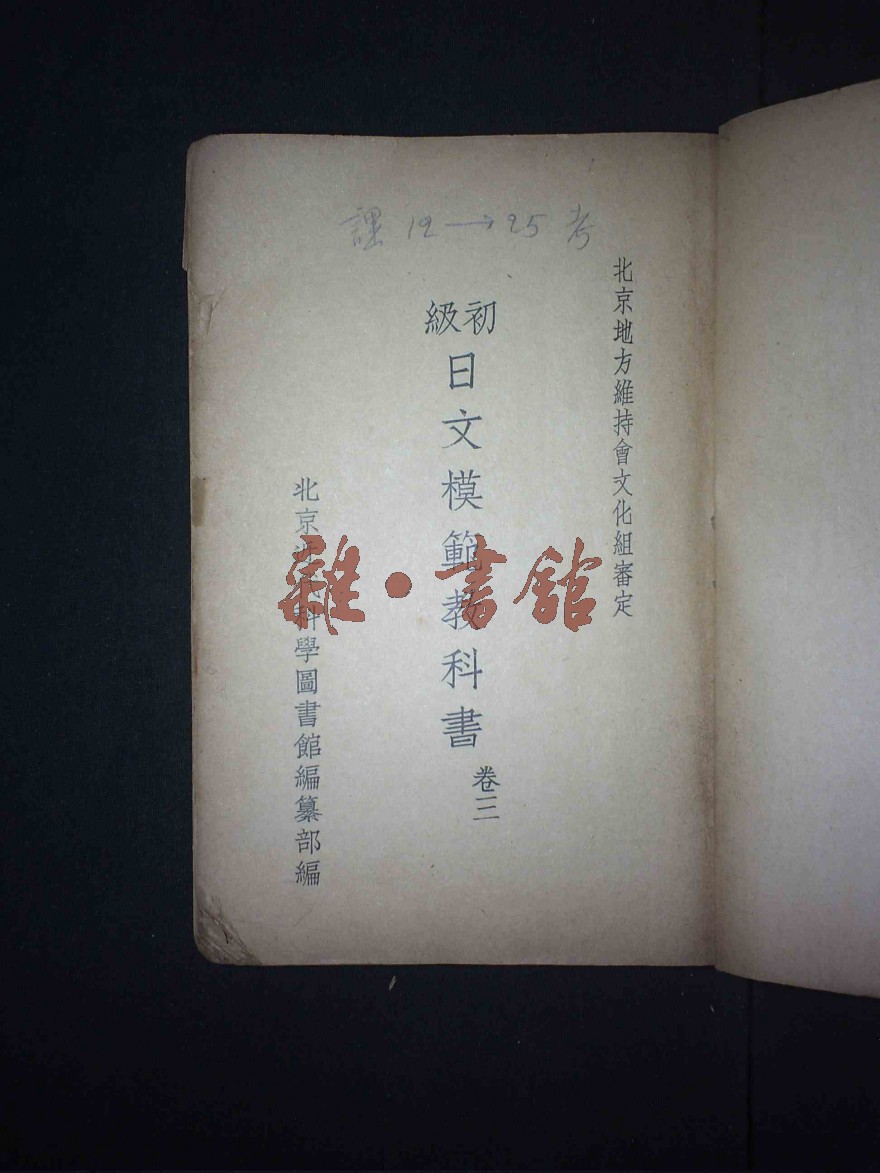 課 12→25 考
北京地方維持會文化組審定
初級
日文模範教科書
卷三
北京近代科學圖書館編纂部編
雜·書館